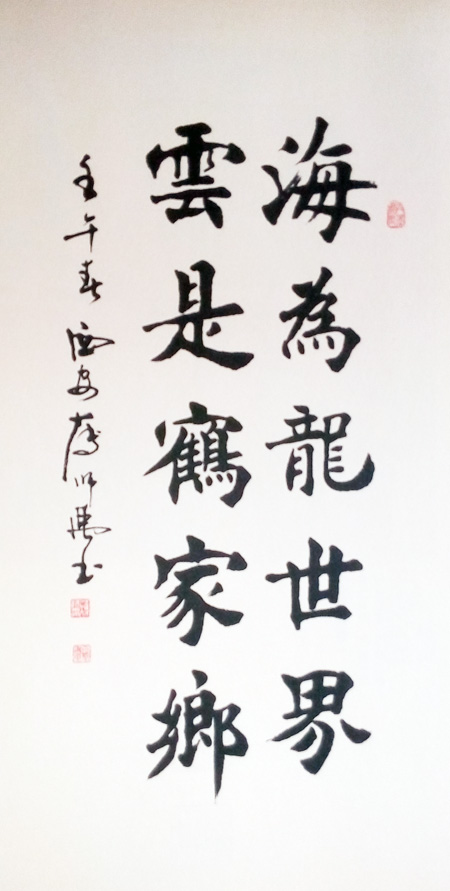 海為龍世界
雲是鶴家鄉
壬午春 西安